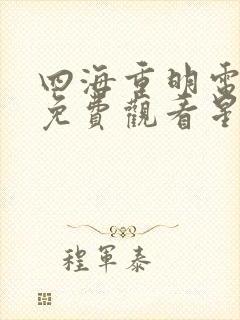 四海重明電
免費觀看星
程軍泰